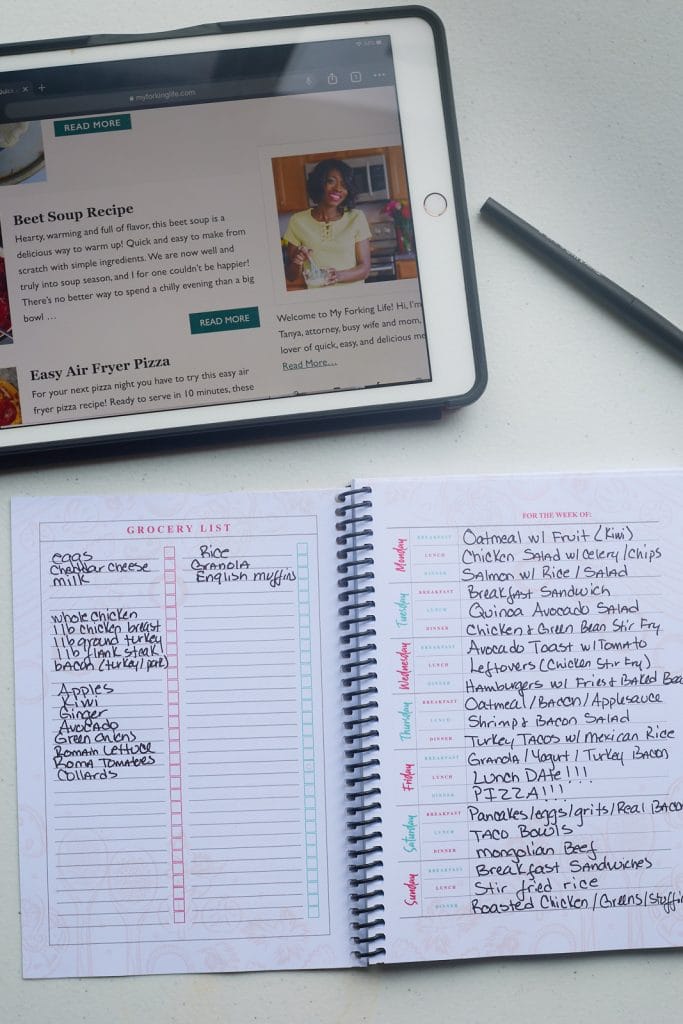 myforkinglife.com
READ MORE
Beet Soup Recipe
Hearty, warming and full of flavor, this beet soup is a
delicious way to warm up! Quick and easy to make from
scratch with simple ingredients. We are now well and
truly into soup season, and I for one couldn't be happier!
There's no better way to spend a chilly evening than a big
bowl …
READ MORE
Easy Air Fryer Pizza
For your next pizza night you have to try this easy air
fryer pizza recipe! Ready to serve in 10 minutes, these
Welcome to My Forking Life! Hi, I'm
Tanya, attorney, busy wife and mom,
lover of quick, easy, and delicious me
Read More...
GROCERY LIST
eggs
Cheddar cheese
milk
whole chicken
1 lb chicken breast
1 lb ground turkey
1 lb flank steak
bacon (turkey/pork)
Apples
Kiwi
Ginger
Avocado
Green onions
Romain Lettuce
Roma Tomatoes
Collards
Rice
GRANOLA
English muffins
FOR THE WEEK OF:
Monday
BREAKFAST Oatmeal w/ Fruit (Kiwi)
LUNCH Chicken Salad w/ Celery/Chips
DINNER Salmon w/ Rice/Salad
Tuesday
BREAKFAST Breakfast Sandwich
LUNCH Quinoa Avocado Salad
DINNER Chicken & Green Bean Stir Fry
Wednesday
BREAKFAST Avocado Toast w/ Tomato
LUNCH Leftovers (Chicken Stir Fry)
DINNER Hamburgers w/ Fries & Baked Bea
Thursday
BREAKFAST Oatmeal/Bacon/Applesauce
LUNCH Shrimp & Bacon Salad
DINNER Turkey Tacos w/ Mexican Rice
Friday
BREAKFAST Granola/Yogurt/Turkey Bacon
LUNCH Lunch Date!!!
DINNER PIZZA!!!
Saturday
BREAKFAST Pancakes/eggs/grits/Real Baco
LUNCH Taco Bowls
DINNER Mongolian Beef
Sunday
BREAKFAST Breakfast Sandwiches
LUNCH Stir fried rice
DINNER Roasted Chicken/Greens/Stuffin